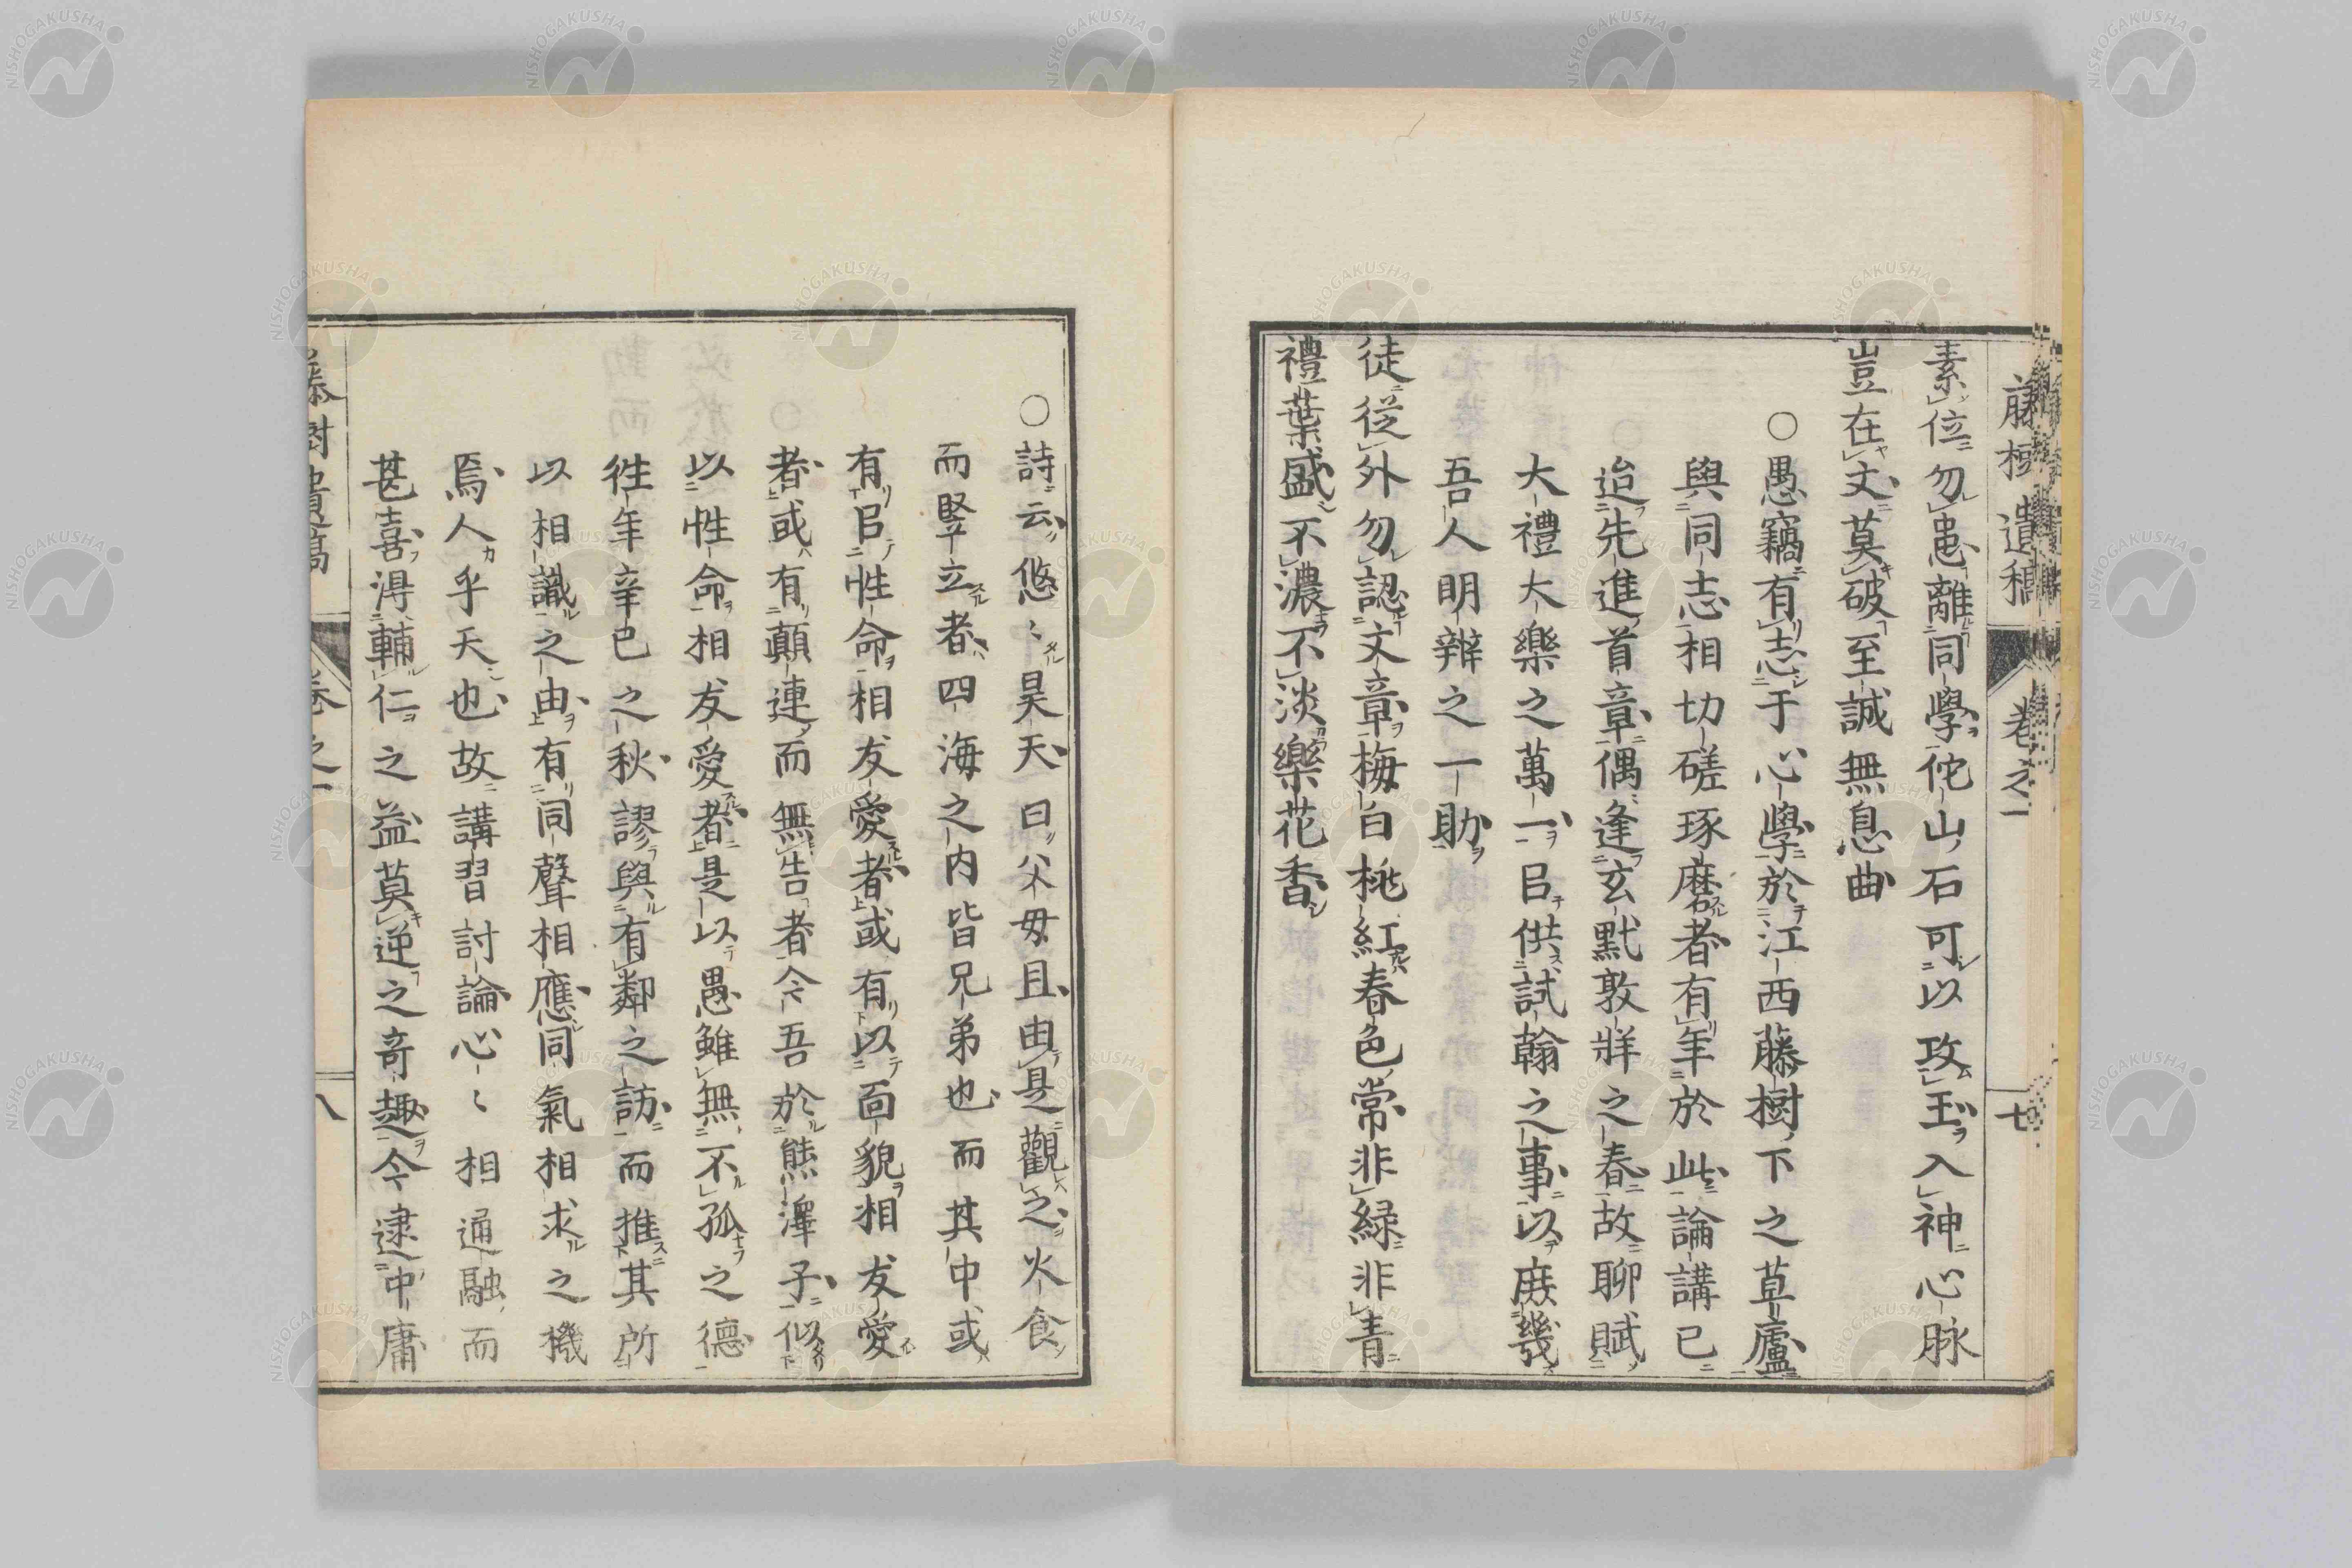 藤樹遺稿 卷之一 七
素位勿患離同學佗山石可以攻玉入神心脉
豈在文莫破至誠無息曲
○愚竊有志于心學於江西藤樹下之草廬
與同志相切磋琢磨者有年於此論講已
迨先進首章偶逢玄黓敦牂之春故聊賦
大禮大樂之萬一㠯供試翰之事以庶幾
吾人明辯之一助
徒從外勿認文章梅白桃紅春色常非緑非青
禮葉盛不濃不淡樂花香
○詩云悠〻昊天曰父母且由是觀之火食
而豎立者四海之内皆兄弟也而其中或
有㠯性命相友愛者或有以面貌相友愛
者或有顛連而無告者今吾於熊澤子似
以性命相友愛者是以愚雖無不孤之德
徃年辛巳之秋謬與有鄰之訪而推其所
以相識之由有同聲相應同氣相求之機
焉人乎天也故講習討論心〻相通融而
甚喜淂輔仁之益莫逆之奇趣今逮中庸
藤樹遺稿 卷之一 八
NISHOGAKUSHA